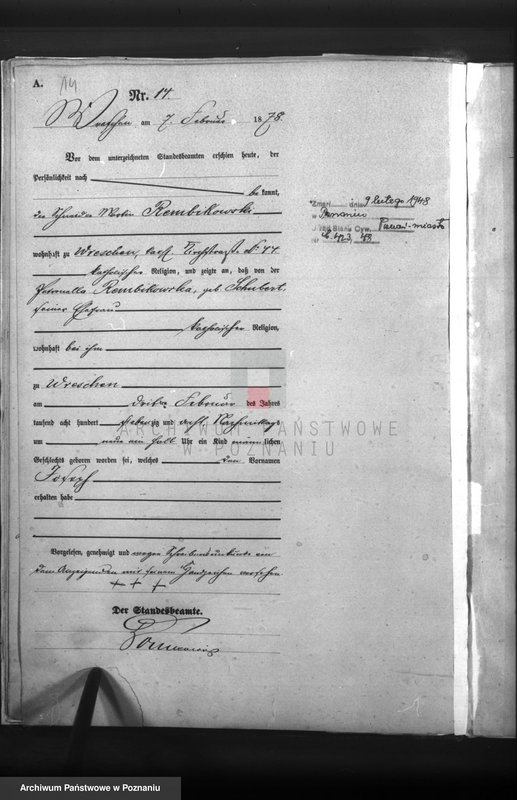 A. 14
Nr. 14.
Wreschen am 7. Februar 1878.
Vor dem unterzeichneten Standesbeamten erschien heute, der
Persönlichkeit nach
be kannt,
der Schneider Martin Rembikowski
wohnhaft zu Wreschen,
katholischer Religion, und zeigte an, daß von der
Petronella Rembikowska, geb. Schubert,
seiner Ehefrau
katholischer Religion,
wohnhaft bei ihm
zu Wreschen
am dritten Februar des Jahres
tausend acht hundert siebenzig und acht, Nachmittags
um neun ein halb Uhr ein Kind männlichen
Geschlechts geboren worden sei, welches den Vornamen
Joseph
erhalten habe
Vorgelesen, genehmigt und wegen Schreibensunkunde von
dem Anzeigenden mit seinem Handzeichen versehen
+ + +
Der Standesbeamte.
Zmarł dnia 9 lutego 1948
w Poznaniu
Urząd Stanu Cyw. Poznań-miasto
Nr
ARCHIWUM PAŃSTWOWE
W POZNANIU
Archiwum Państwowe w Poznaniu